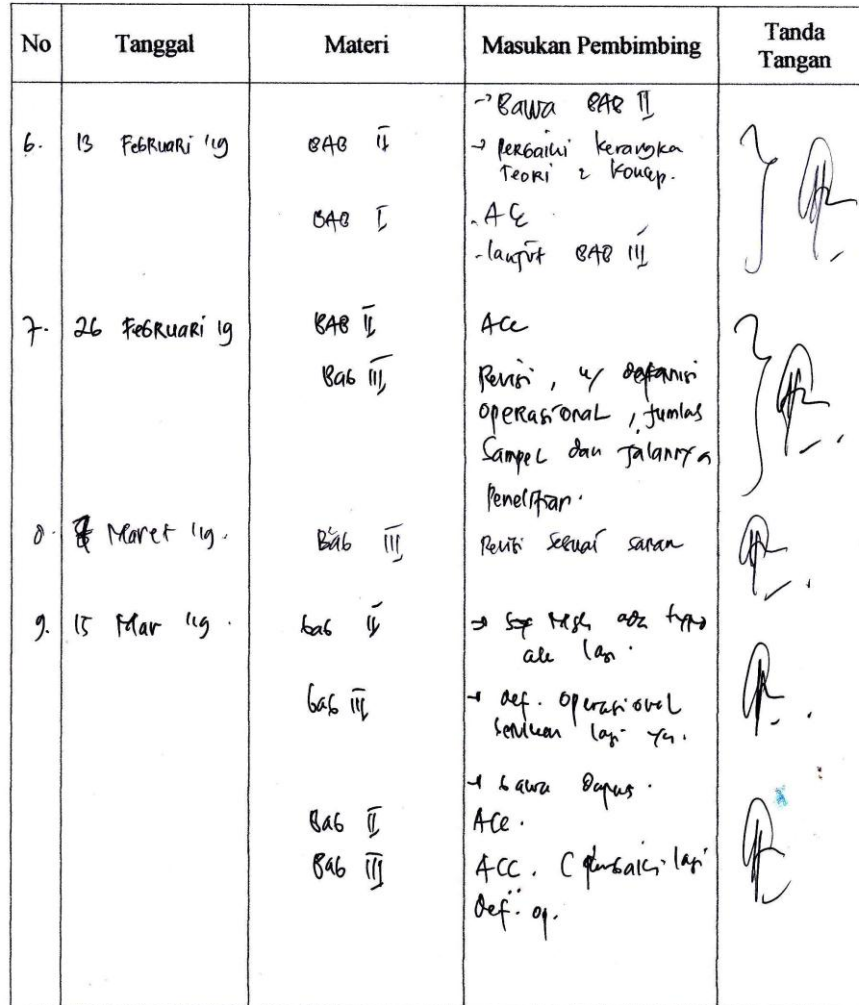 No Tanggal Materi Masukan Pembimbing Tanda Tangan
→ Bawa BAB II
6. 13 Februari '19 BAB II → perbaiki kerangka
teori & konsep.
BAB I - ACC
- lanjut BAB III
7. 26 Februari 19 BAB II ACC
Bab III Revisi, u/ definisi
operasional, jumlah
sampel dan jalannya
penelitian.
8. Maret '19. Bab III Revisi sesuai saran
9. 15 Mar '19. bab II → ada typo
lagi.
bab III → def. operasional
lagi ya.
→ bawa dapus.
Bab II ACC.
Bab III ACC. ( perbaiki lagi
def. op.